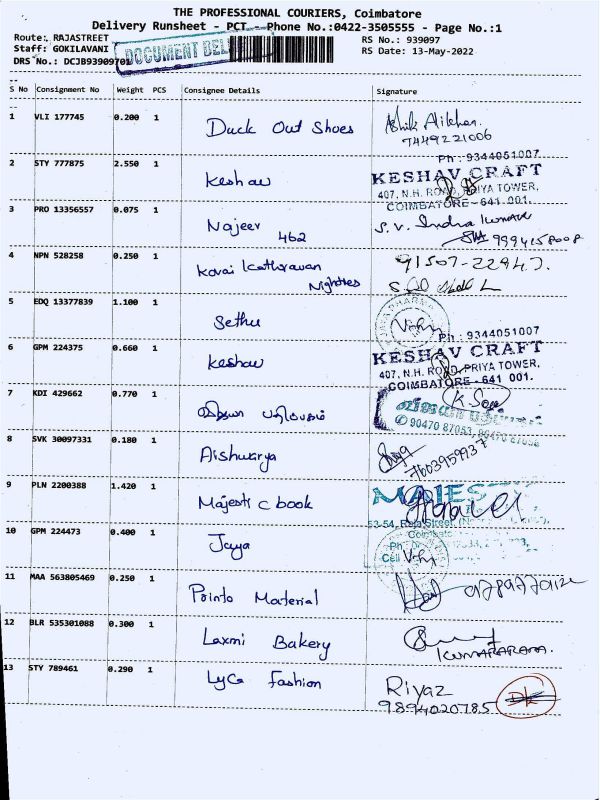 THE PROFESSIONAL COURIERS, Coimbatore
Delivery Runsheet - PCT - Phone No.:0422-3505555 - Page No.:1
Route: RAJASTREET
RS No.: 939097
Staff: GOKILAVANI
RS Date: 13-May-2022
DRS No.: DCJB9390970
DOCUMENT DEL
S No Consignment No Weight PCS Consignee Details Signature
1 VLI 177745 0.200 1 Duck Out Shoes
7449221006
2 STY 777875 2.550 1 Keshav
Ph : 9344051007
KESHAV CRAFT
407, N.H. ROAD, PRIYA TOWER,
COIMBATORE - 641 001.
3 PRO 13356557 0.075 1 Najeer
462
S.V. Indra Kumar
9994158008
4 NPN 528258 0.250 1 Kovai Kathiravan
Nighties
91507-22947.
5 EDQ 13377839 1.100 1 Sethu
PHARMA
6 GPM 224375 0.660 1 Keshav
Ph : 9344051007
KESHAV CRAFT
407, N.H. ROAD, PRIYA TOWER,
COIMBATORE - 641 001.
7 KDI 429662 0.770 1
90470 87053,
8 SVK 30097331 0.180 1 Aishwarya
7603959937
9 PLN 2200388 1.420 1 Majestic book
MAJES
53-54, Raja Street
Coimbato
10 GPM 224473 0.400 1 Jaya
Ph
Cell
11 MAA 563805469 0.250 1 Pointo Material
12 BLR 535301088 0.300 1 Laxmi Bakery
13 STY 789461 0.290 1 Lyca Fashion
Riyaz
9894020785